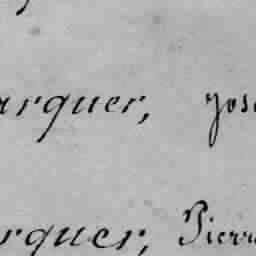 arquer, Jos
rquer, Pierr